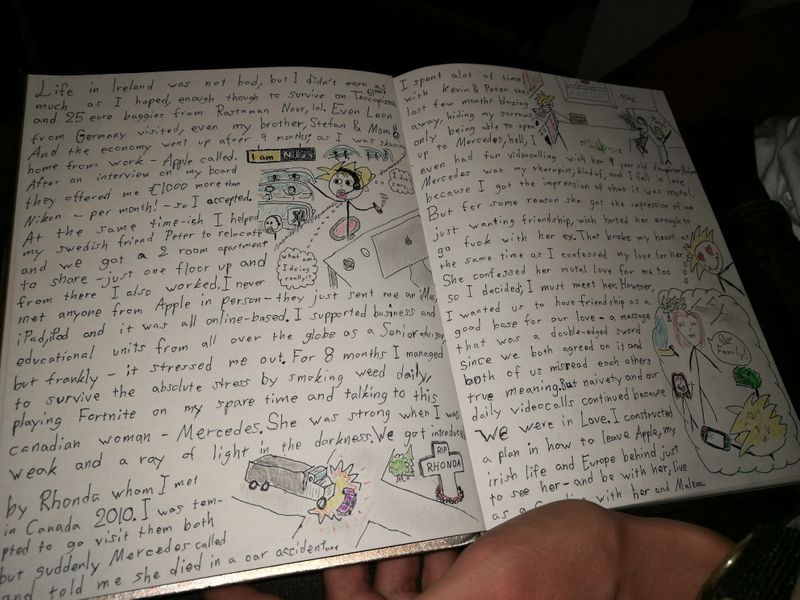 Life in Ireland was not bad, but I didn't earn as
much as I hoped, enough though to survive on Tescopizza
and 25 euro baggies from Rastaman Nour, lol. Even Leon
from Germany visited, even my brother, Stefan & Mom
And the economy went up after 9 months, as I was
home from work - Apple called.
After an interview on my board
they offered me €1000 more than
Nikon - per month! - so I accepted.
At the same time-ich I helped
my swedish friend Peter to relocate
and we got a 2 room apartment
to share - just one floor up and
from there I also worked. I never
met anyone from Apple in person - they just sent me an iMac,
iPad, iPod and it was all online-based. I supported business and
educational units from all over the globe as a Senior advisor
but frankly - it stressed me out. For 8 months I managed
to survive the absolute stress by smoking weed daily,
playing Fortnite on my spare time and talking to this
canadian woman - Mercedes. She was strong when I was
weak and a ray of light in the darkness. We got introduced
by Rhonda whom I met
in Canada 2010. I was tem-
pted to go visit them both
but suddenly Mercedes called
and told me she died in a car accident
I am
I don't care.
What am
I doing
really!?
RIP
RHONDA
I spent alot of time
with Kevin & Peter the
last few months blazing
away, hiding my sorrows,
only being able to open
up to Mercedes, hell, I
even had fun videocalling with her 9 year old daughter
Mercedes was my therapist, kind of, and I fell in love
because I got the impression of that it was mutal.
But for some reason she got the impression of me
just wanting friendship, wich hurted her enough to
go fuck with her ex. That broke my heart at
the same time as I confessed my love for her.
She confessed her mutal love for me too
so I decided; I must meet her. However,
I wanted us to have friendship as a
good base for our love - a message
that was a double-edged sword
since we both agreed on it and
both of us misread each others
true meaning. But naivety and our
daily videocalls continued because
We were in Love. I constructed
a plan in how to leave Apple, my
irish life and Europe behind just
to see her - and be with her, live
as a with her and Malena.
Our
Family!